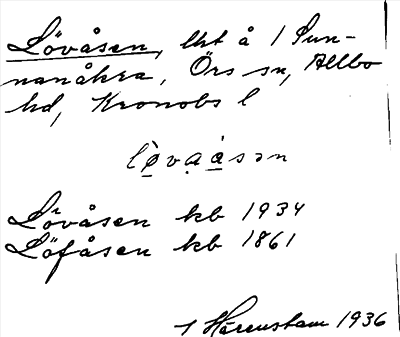 Lövåsen, lht å 1 Sun-
nanåkra, Örs sn, Allbo
hd, Kronobs l
lo̱va̤a̱sən
Lövåsen kb 1934
Löfåsen kb 1861
1 Hårenstam 1936